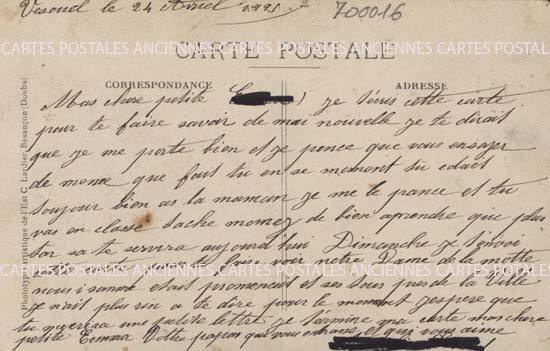 Vesoul le 24 Avril 1921
700016
CARTES POSTALES ANCIENNES CARTES POSTALES ANCIENNES CARTES POSTALES ANCIENNES
CARTE POSTALE
CORRESPONDANCE
ADRESSE
Phototypie artistique de l'Est C. Lardier, Besançon (Doubs)
Mas chere petite je técris cette carte
pour te faire savoir de mai nouvelle je te dirait
que je me porte bien et je pence que vous
de meme que fait tu en se moment
toujour bien as la maman je me le pance et tu
vas en classe tache de bien aprendre que plus
ton sa te servira aujourd'hui Dimanche je
voir notre Dame de la motte
nous i somme etait promenait et ses tous pres de la Ville
je n'ait plus rin a te dire pour le moment j'espere que
tu une petite lettre je termine ma carte mas chere
petite Emma Votre papas qui vous et qui vous aime